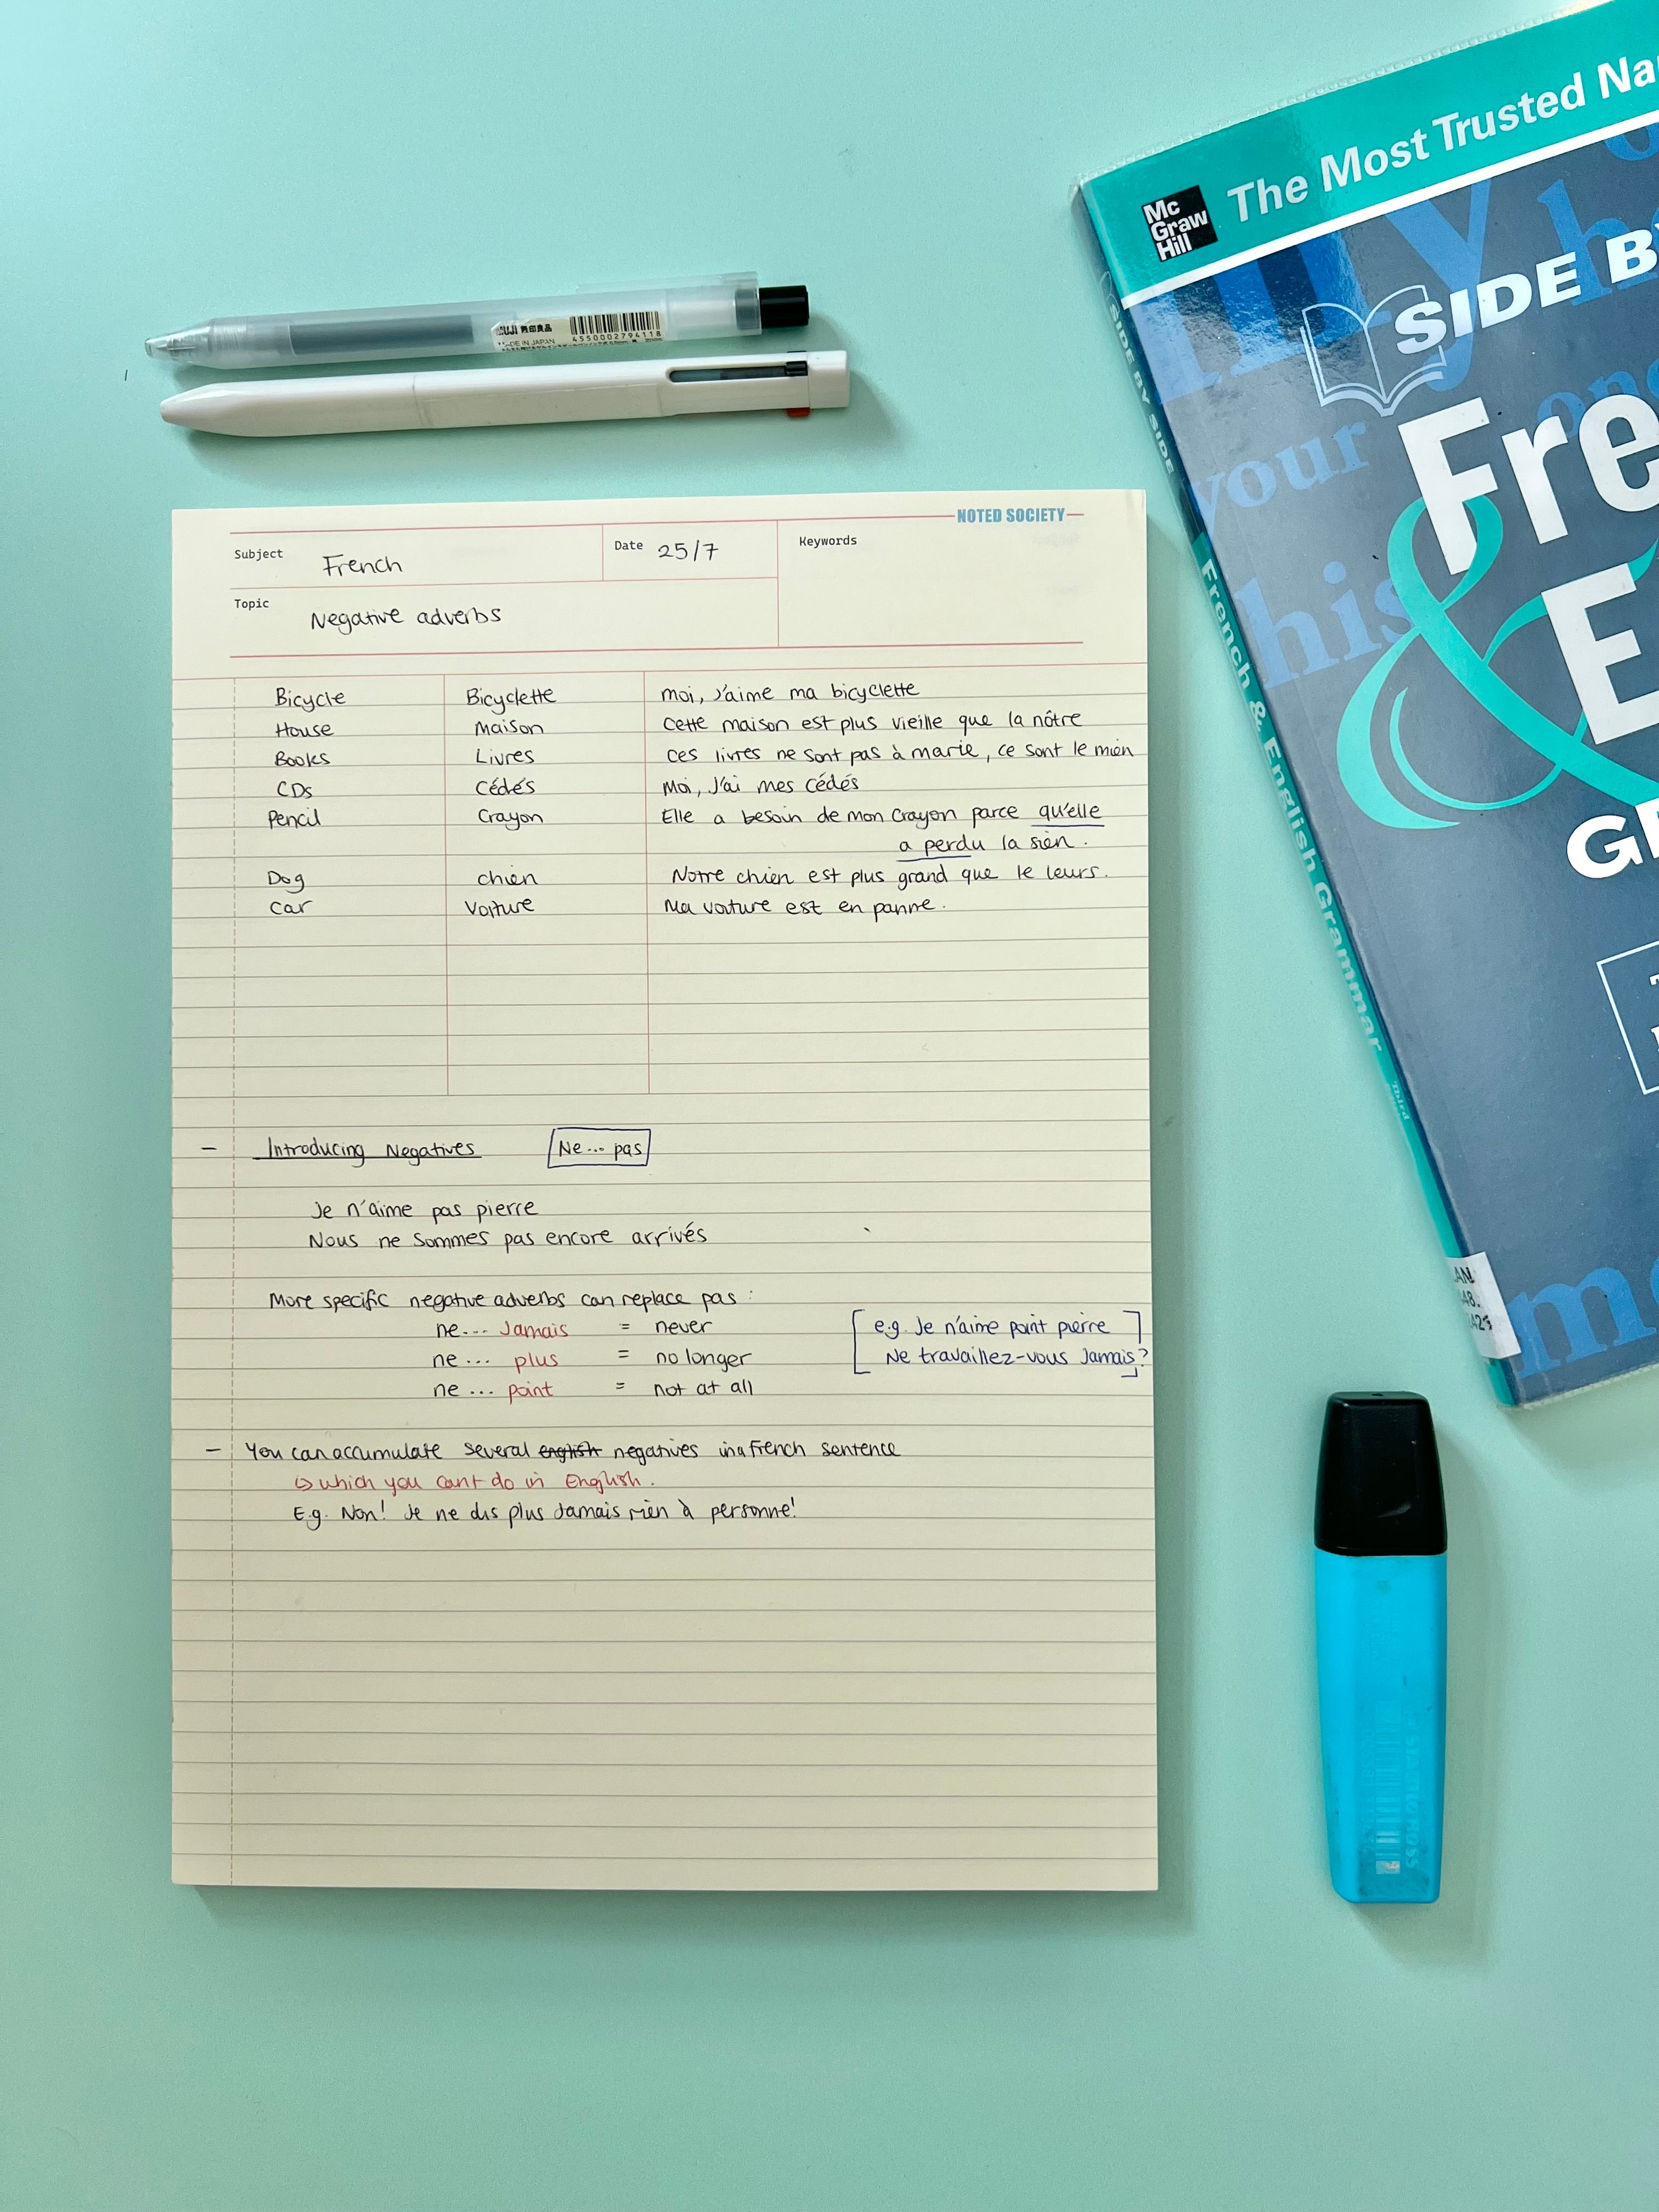 The Most Trusted Na
Mc
Graw
Hill
SIDE BY
Fre
&
E
GR
my
your
his
one
SIDE BY SIDE
French & English Grammar
Third
AN
48.
421
MUJI 無印良品
MADE IN JAPAN
4550002794118
NOTED SOCIETY
Subject French Date 25/7 Keywords
Topic Negative adverbs
Bicycle Bicyclette moi, J'aime ma bicyclette
House Maison Cette maison est plus vieille que la nôtre
Books Livres ces livres ne sont pas à marie, ce sont le mien
CDs Cédés Moi, J'ai mes cédés
Pencil Crayon Elle a besoin de mon crayon parce qu'elle
a perdu la sien.
Dog chien Notre chien est plus grand que le leurs.
Car Voiture Ma voiture est en panne.
- Introducing Negatives Ne... pas
Je n'aime pas pierre
Nous ne sommes pas encore arrivés
More specific negative adverbs can replace pas:
ne... Jamais = never [e.g. Je n'aime point pierre
ne... plus = no longer Ne travaillez-vous Jamais?]
ne... point = not at all
- You can accumulate several english negatives in a French sentence
↳ which you cant do in English.
E.g. Non! Je ne dis plus Jamais rien à personne!
STABILO BOSS